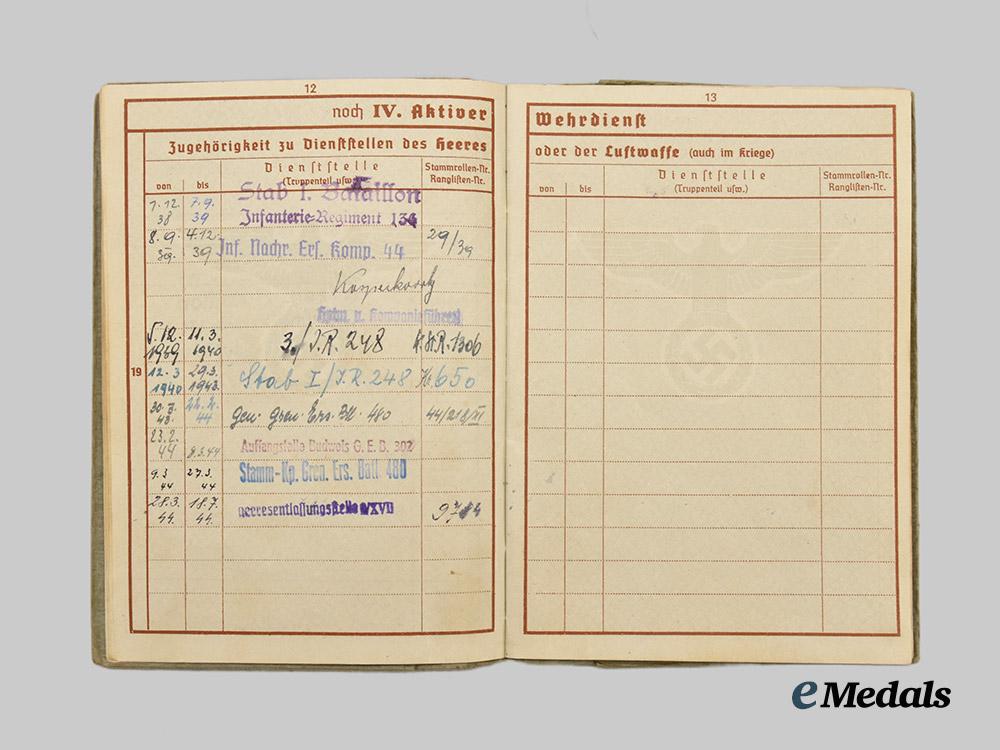 12
noch IV. Aktiver
Zugehörigkeit zu Dienststellen des Heeres
von
bis
Dienststelle
(Truppenteil usw.)
Stammrollen-Nr.
Ranglisten-Nr.
1.12. 38 7.9. 39 Stab I. Bataillon
Infanterie-Regiment 134
8.9. 39. 4.12. 39 Inf. Nachr. Ers. Komp. 44 29/39
Hptm. u. Kompanieführer
5.12. 1939 11.3. 1940 3./J.R. 248
19
12.3 1940 29.3. 1943. Stab I/J.R. 248 650
44 gen. Gren. Ers. Btl. 480
23.2. 44 8.3.44 Auffangstelle Budweis G.E.B. 302
9.3 44 27.3. 44 Stamm-Kp. Gren. Ers. Batl. 480
28.3. 44. 18.7. 44. Heeresentlassungsstelle /XVII
13
Wehrdienst
oder der Luftwaffe (auch im Kriege)
von
bis
Dienststelle
(Truppenteil usw.)
Stammrollen-Nr.
Ranglisten-Nr.
eMedals